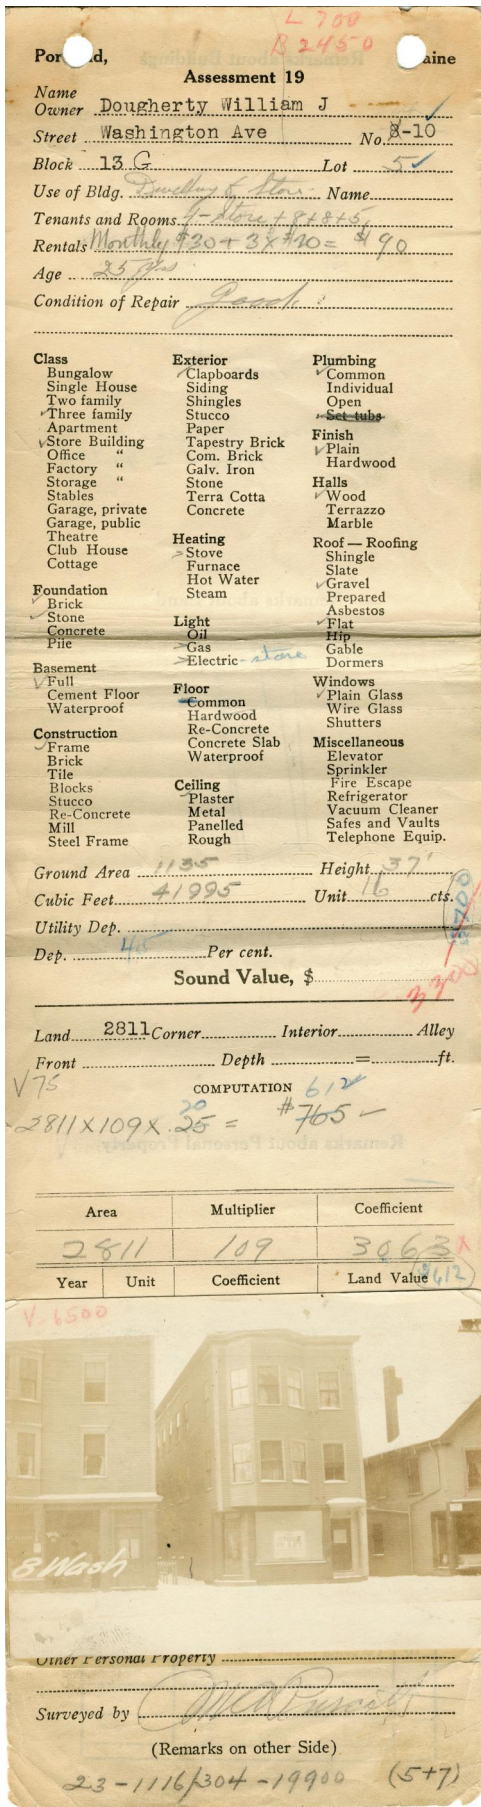 L 700
B 2450
Assessment 19
Name
Owner Dougherty William J
Street Washington Ave No. 8-10
Block 13 G Lot 5
Use of Bldg. Dwelling & Store Name
Tenants and Rooms 1-Store + 8+8+5
Rentals Monthly $30 + 3 x $20 = $90
Age 25 yrs.
Condition of Repair Good
Class
Bungalow
Single House
Two family
Three family
Apartment
Store Building
Office "
Factory "
Storage "
Stables
Garage, private
Garage, public
Theatre
Club House
Cottage
Foundation
Brick
Stone
Concrete
Pile
Basement
Full
Cement Floor
Waterproof
Construction
Frame
Brick
Tile
Blocks
Stucco
Re-Concrete
Mill
Steel Frame
Exterior
Clapboards
Siding
Shingles
Stucco
Paper
Tapestry Brick
Com. Brick
Galv. Iron
Stone
Terra Cotta
Concrete
Heating
Stove
Furnace
Hot Water
Steam
Light
Oil
Gas
Electric - store
Floor
Common
Hardwood
Re-Concrete
Concrete Slab
Waterproof
Ceiling
Plaster
Metal
Panelled
Rough
Plumbing
Common
Individual
Open
Set tubs
Finish
Plain
Hardwood
Halls
Wood
Terrazzo
Marble
Roof — Roofing
Shingle
Slate
Gravel
Prepared
Asbestos
Flat
Hip
Gable
Dormers
Windows
Plain Glass
Wire Glass
Shutters
Miscellaneous
Elevator
Sprinkler
Fire Escape
Refrigerator
Vacuum Cleaner
Safes and Vaults
Telephone Equip.
Ground Area 1135 Height 37'
Cubic Feet 41995 Unit 16 cts.
Utility Dep.
Dep. 45 Per cent.
Sound Value, $
3300
Land 2811 Corner Interior Alley
Front Depth = ft.
V 75
COMPUTATION 612
20
2811 x 109 x .25 = $765
Area Multiplier Coefficient
2811 109 3063
Year Unit Coefficient Land Value
$612
V-6500
8 Wash
Other Personal Property
Surveyed by
(Remarks on other Side)
23-1116/304-19900 (5+7)